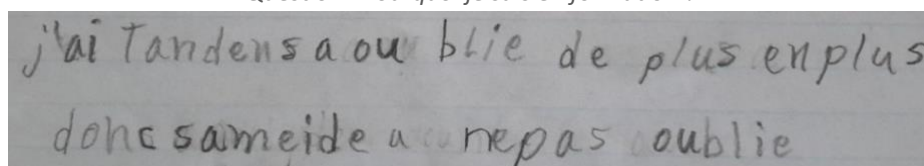 j'ai Tandensaou blie de plus enplus
donc sameide a nepas oublie